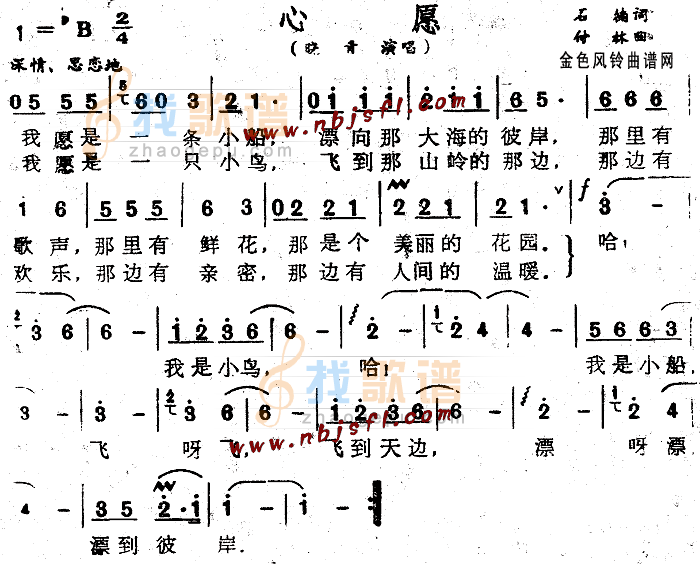 心 愿
1 = ♭B 2/4
(晓青 演唱)
石 词
付 林 曲
深情、思恋地
金色风铃曲谱网
找歌谱
zhaogepu.com
www.nbjsfl.com
05 55 | 60 03 | 21· | 01 11 | 2·1 11 | 65· | 6 56
我愿是 一条小船， 漂向那 大海的彼岸， 那里有
我愿是 一只小鸟， 飞到那 山岭的那边， 那边有
1 6 | 555 5 | 6 3 | 02 21 | 2 21 | 21· | 3 —
歌声，那里有 鲜花，那是个 美丽的 花园。 哈，
欢乐，那边有 亲密，那边有 人间的 温暖。
3 6 | 6 — | 12 36 | 6 — | 2 — | 2 4 | 4 — | 56 63
我是小鸟， 哈， 我是小船，
找歌谱
zhaogepu.com
www.nbjsfl.com
3 — | 3 — | 3 6 | 6 — | 12 36 | 6 — | 2 — | 2 4
飞 呀飞， 飞到天边， 漂 呀漂
4 — | 35 2·1 | 1 — | 1 — ‖
漂到 彼 岸.